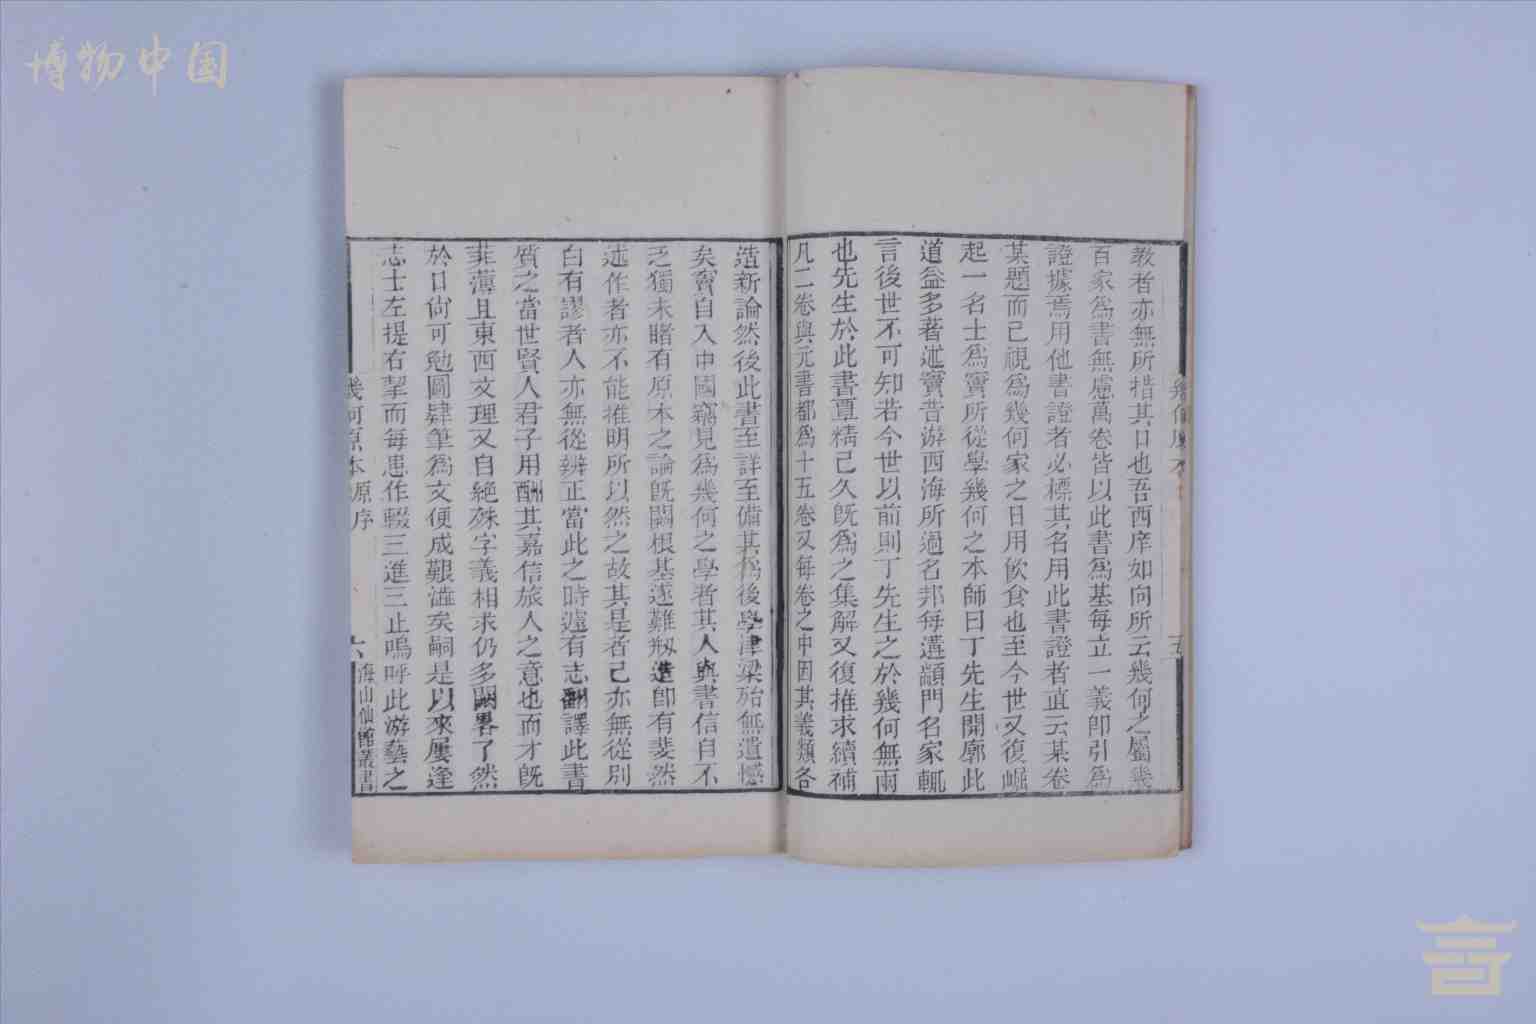 博物中国
教者亦無所措其口也吾西庠如向所云幾何之屬幾
百家爲書無慮萬卷皆以此書爲基每立一義卽引爲
證據焉用他書證者必標其名用此書證者直云某卷
某題而已視爲幾何家之日用飲食也至今世又復崛
起一名士爲竇所從學幾何之本師曰丁先生開廓此
道益多著述竇昔游西海所過名邦每遘顓門名家輒
言後世不可知若今世以前則丁先生之於幾何無兩
也先生於此書覃精已久旣爲之集解又復推求續補
凡二卷與元書都爲十五卷又每卷之中因其義類各
造新論然後此書至詳至備其爲後學津梁殆無遺憾
矣竇自入中國竊見爲幾何之學者其人與書信自不
乏獨未睹有原本之論旣闕根基遂難剏造卽有斐然
述作者亦不能推明所以然之故其是者己亦無從別
白有謬者人亦無從辨正當此之時遽有志翻譯此書
質之當世賢人君子用酬其嘉信旅人之意也而才旣
菲薄且東西文理又自絕殊字義相求仍多闕畧了然
於口尙可勉圖肆筆爲文便成艱澁矣嗣是以來屢逢
志士左提右挈而每患作輟三進三止嗚呼此游藝之
幾何原本原序
六
海山仙館叢書